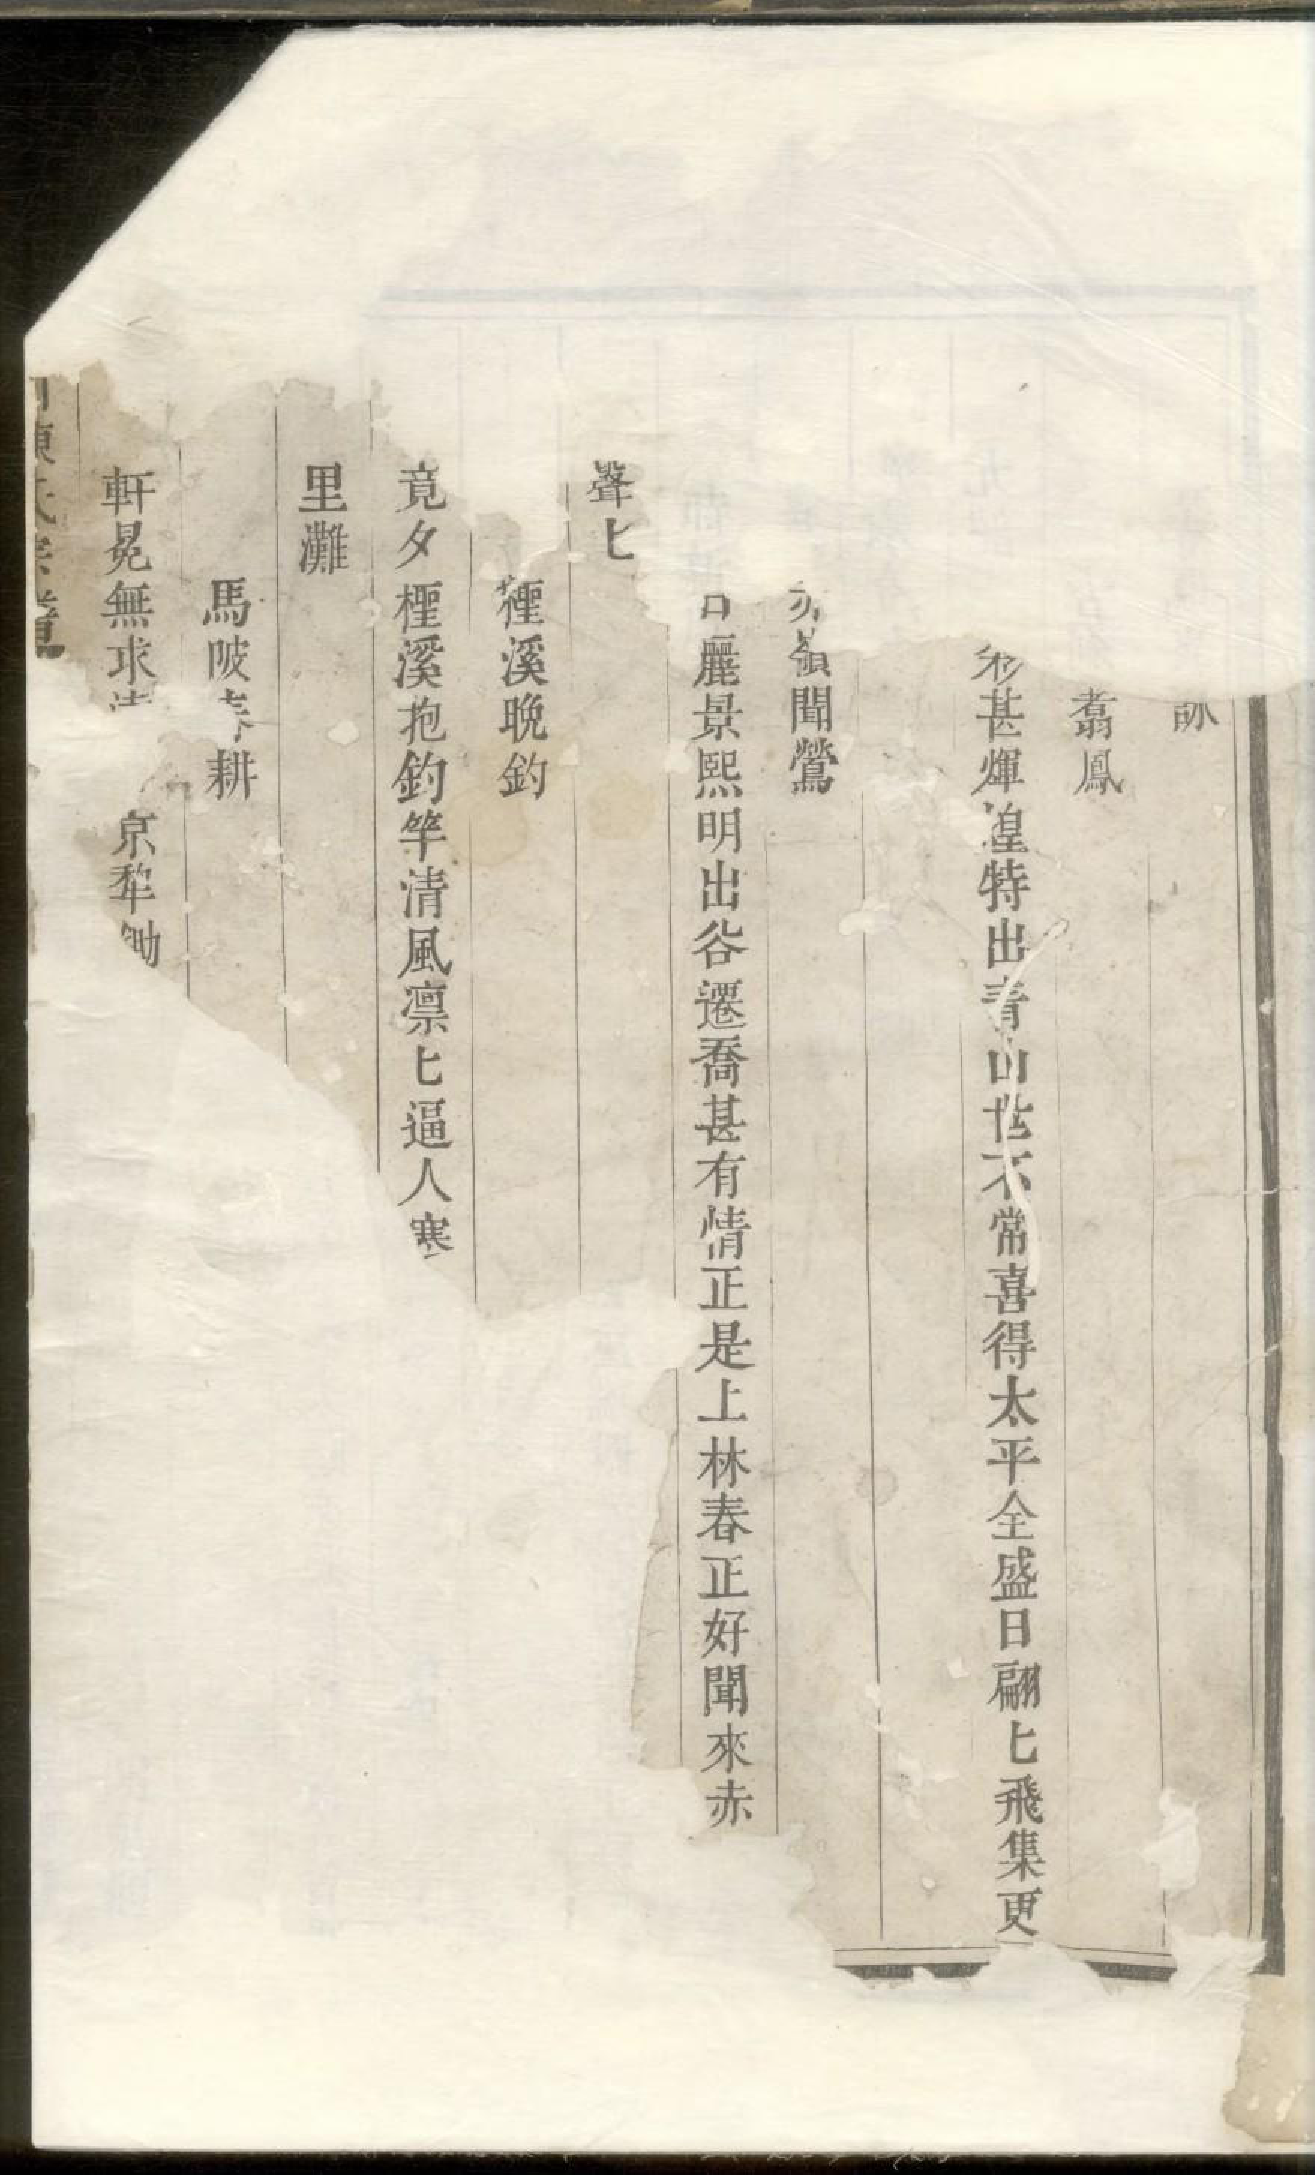 詠
翥鳳
彩甚煇湟特出青山世不常喜得太平全盛日翩匕飛集更
嶺聞鶯
麗景熙明出谷遷喬甚有情正是上林春正好聞來赤
聲匕
溪晚釣
竟夕檉溪抱釣竿清風凛匕逼人寒
里灘
馬陂春耕
軒冕無求 京犂鋤
陳氏宗譜